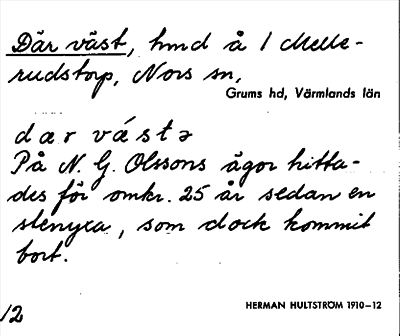 Där väst, hmd å 1 Melle-
rudstorp, Nors sn,
Grums hd, Värmlands län
dær vástə
På N. G. Olssons ägor hitta-
des för omkr. 25 år sedan en
stenyxa, som dock kommit
bort.
12
HERMAN HULTSTRÖM 1910-12